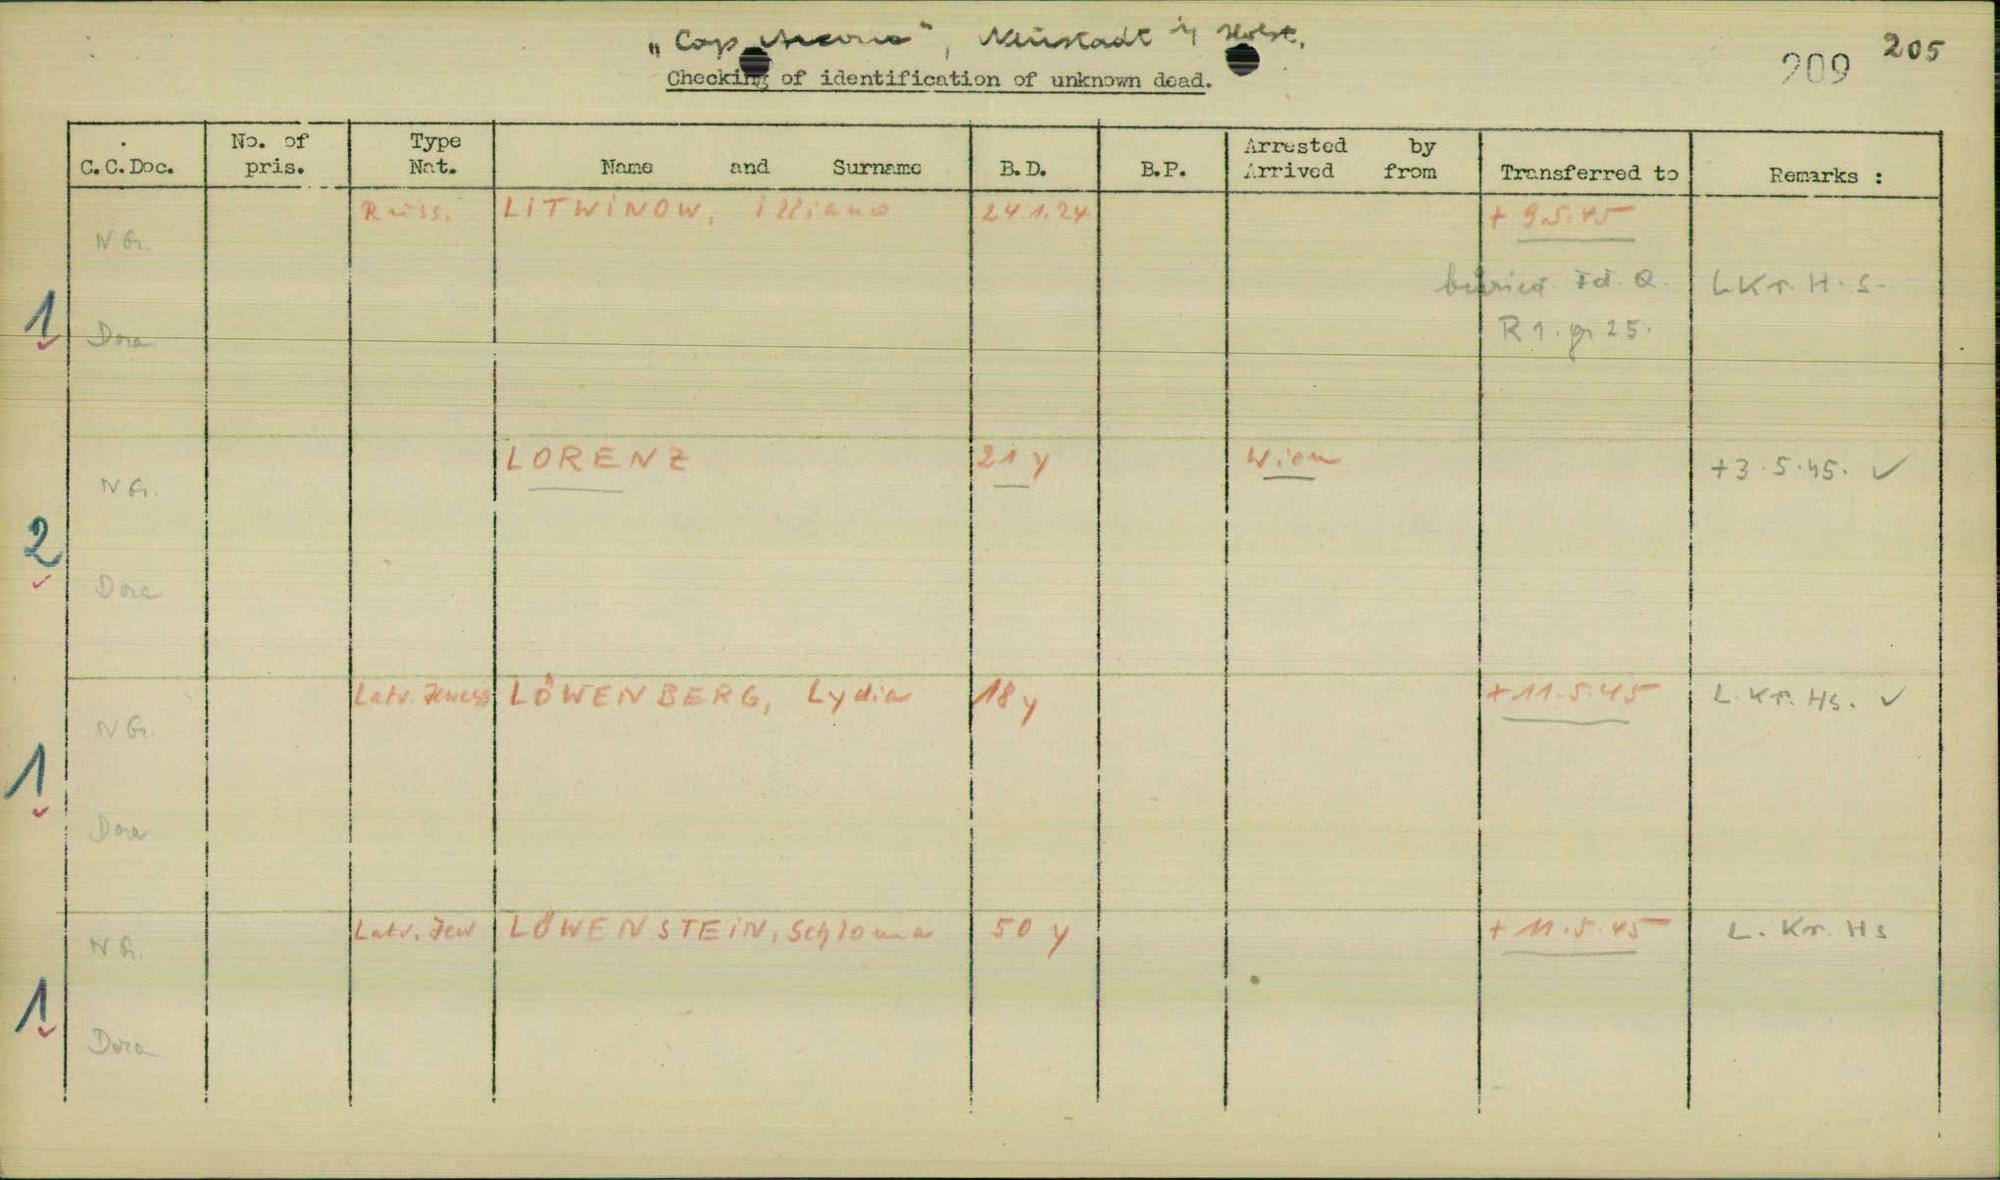 „Cap Arcona", Neustadt i/ Holst.
205
209
Checking of identification of unknown dead.
C.C.Doc. No. of pris. Type Nat. Name and Surname B.D. B.P. Arrested by Arrived from Transferred to Remarks :
Russ. LITWINOW, 24.1.24 + 9.5.45
N G.
buried Fd. Q. L Kr. H. s.
1 Dora R 1. gr 25.
LORENZ 21 y Wien +3.5.45. ✓
N G.
2
Dora
Latv. Jewess LÖWENBERG, Lydia 18 y + 11.5.45 L. Kr. Hs. ✓
N G.
1
Dora
Latv. Jew LÖWENSTEIN, Schloma 50 y + 11.5.45 L. Kr. Hs
N G.
1
Dora